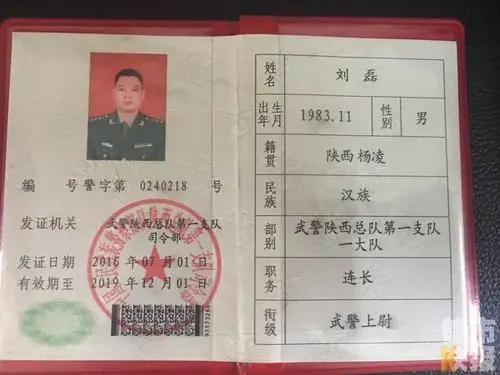 编 号 警字第 0240218 号
发证机关 武警陕西总队第一支队
司令部
发证日期 2016 年 07 月 01 日
有效期至 2019 年 12 月 01 日
姓名 刘 磊
出生年月 1983.11 性别 男
籍贯 陕西杨凌
民族 汉族
部别 武警陕西总队第一支队
一大队
职务 连长
衔级 武警上尉